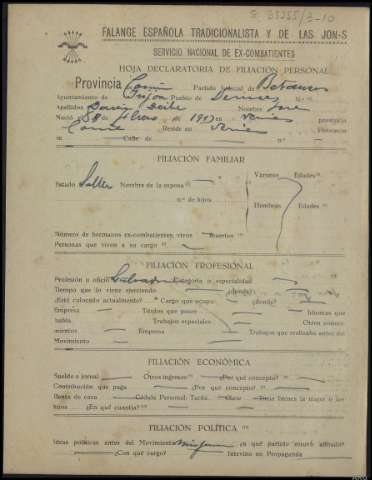 FALANGE ESPAÑOLA TRADICIONALISTA Y DE LAS JON-S
SERVICIO NACIONAL DE EX-COMBATIENTES
HOJA DECLARATORIA DE FILIACIÓN PERSONAL
Provincia Partido judicial de Betanzos
Ayuntamiento de Irijoa Pueblo de
Apellidos Nombre José
Nació de febrero de provincia
Reside en provincia
Calle de
FILIACIÓN FAMILIAR
Estado Solter Nombre de la esposa Varones Edades
n.º de hijos
Hembras Edades
Número de hermanos ex-combatientes, vivos muertos
Personas que viven a su cargo
FILIACIÓN PROFESIONAL
Profesión u oficio Labrador Categoría o especialidad
Tiempo que lo viene ejerciendo ¿dónde?
¿Está colocado actualmente? Cargo que ocupa ¿dónde?
Empresa Títulos que posee Idiomas que
habla Trabajos especiales Otros conoci-
mientos Empresa Trabajos que realizaba antes del
Movimiento
FILIACIÓN ECONÓMICA
Sueldo o jornal Otros ingresos ¿Por qué concepto?
Contribución que paga ¿Por qué concepto?
Renta de casa Cédula Personal: Tarifa Clase Tiene bienes la mujer o los
hijos ¿En qué cuantía?
FILIACIÓN POLÍTICA
Ideas políticas antes del Movimiento ninguna en qué partido estuvo afiliado
¿Con qué cargo? Intervino en Propaganda